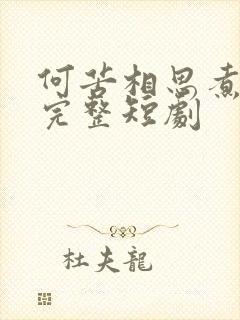 何苦相思煮
完整短劇
杜夫龍